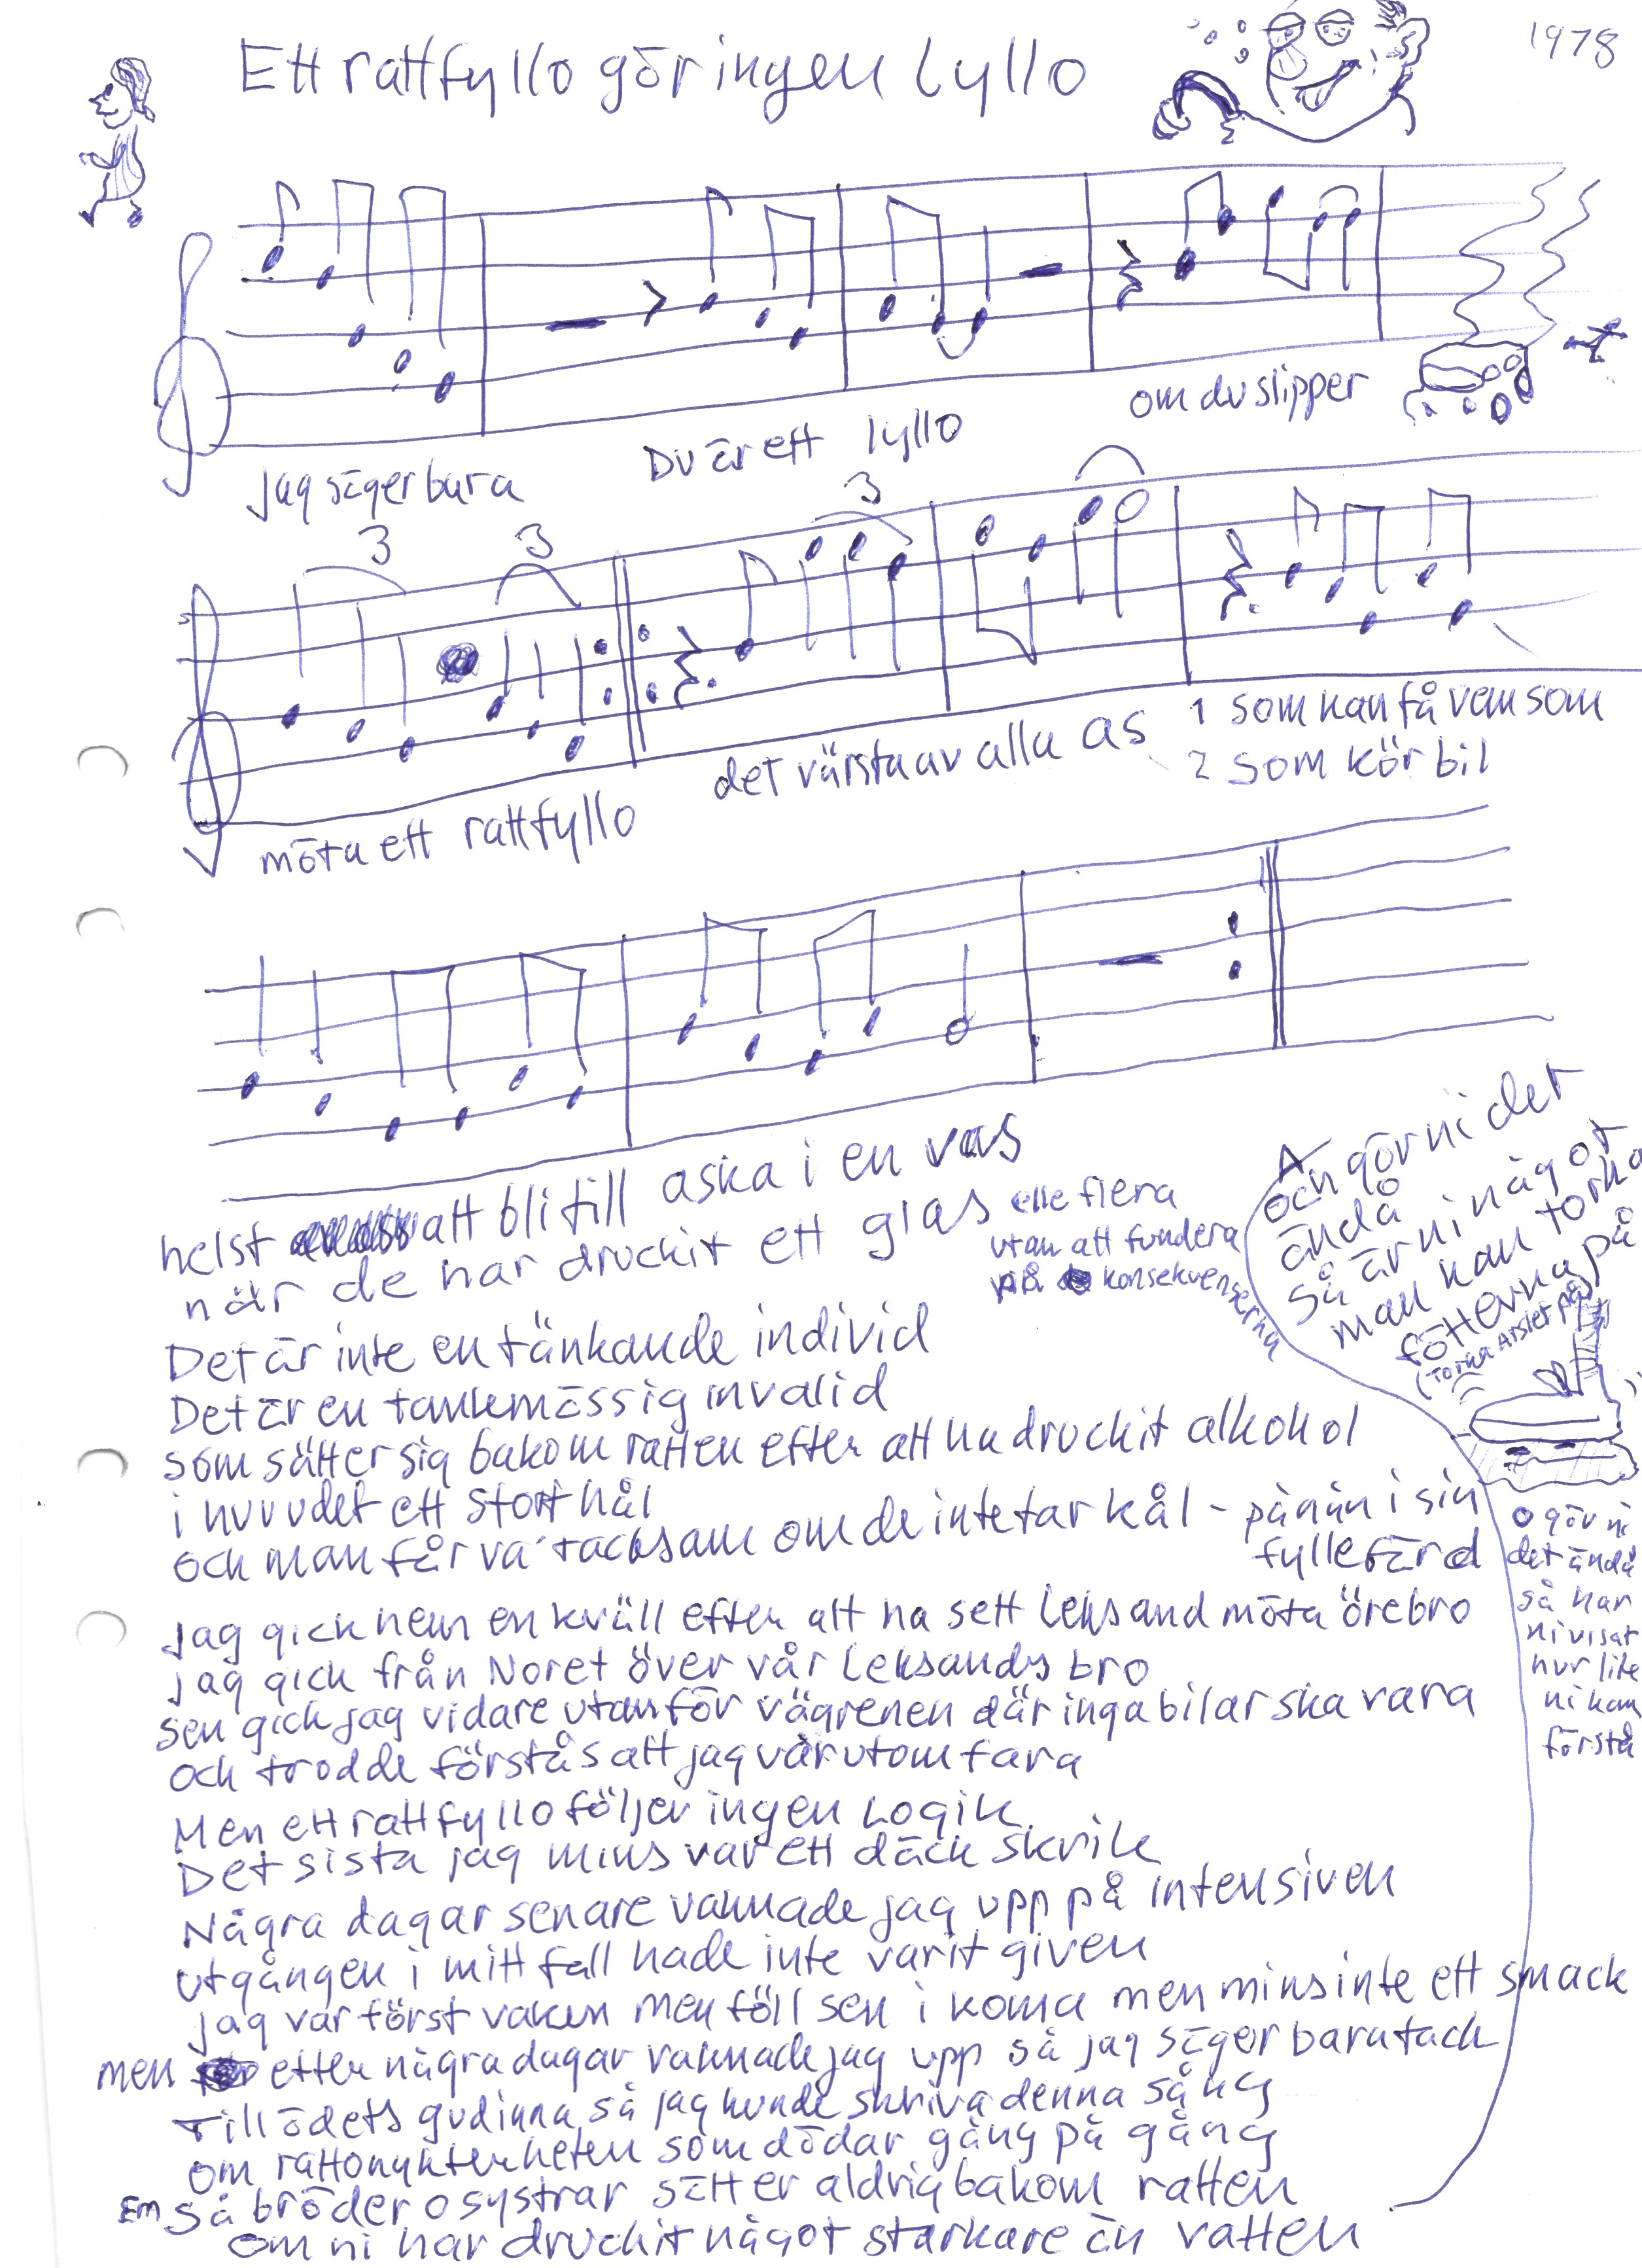 Ett rattfyllo gör ingen lyllo
1978
Jag säger bara
Du är ett lyllo
om du slipper
3
3
3
möta ett rattfyllo
det värsta av alla as
1 som kan få vem som
2 som kör bil
helst att bli till aska i en vas
när de har druckit ett glas elle flera
utan att fundera
på konsekvenserna
Det är inte en tänkande individ
Det är en tankemässig invalid
som sätter sig bakom ratten efter att ha druckit alkohol
i huvudet ett stort hål
och man får va' tacksam om de inte tar kål - på nån i sin
fyllefärd
Jag gick hem en kväll efter att ha sett Leksand möta Örebro
Jag gick från Noret över vår Leksands bro
sen gick jag vidare utanför vägrenen där inga bilar ska vara
och trodde förstås att jag var utom fara
Men ett rattfyllo följer ingen Logik
Det sista jag mins var ett däck skrik
Några dagar senare vaknade jag upp på intensiven
utgången i mitt fall hade inte varit given
jag var först vaken men föll sen i koma men mins inte ett smack
men efter några dagar vaknade jag upp så jag säger bara tack
Till ödets gudinna så jag kunde skriva denna sång
om rattonykterheten som dödar gång på gång
Em Så bröder o systrar sätt er aldrig bakom ratten
om ni har druckit något starkare än vatten
och gör ni det
ändå
så är ni något
man kan torka
fötterna på
(torka arslet på)
o gör ni
det ändå
så har
ni visat
hur lite
ni kan
förstå